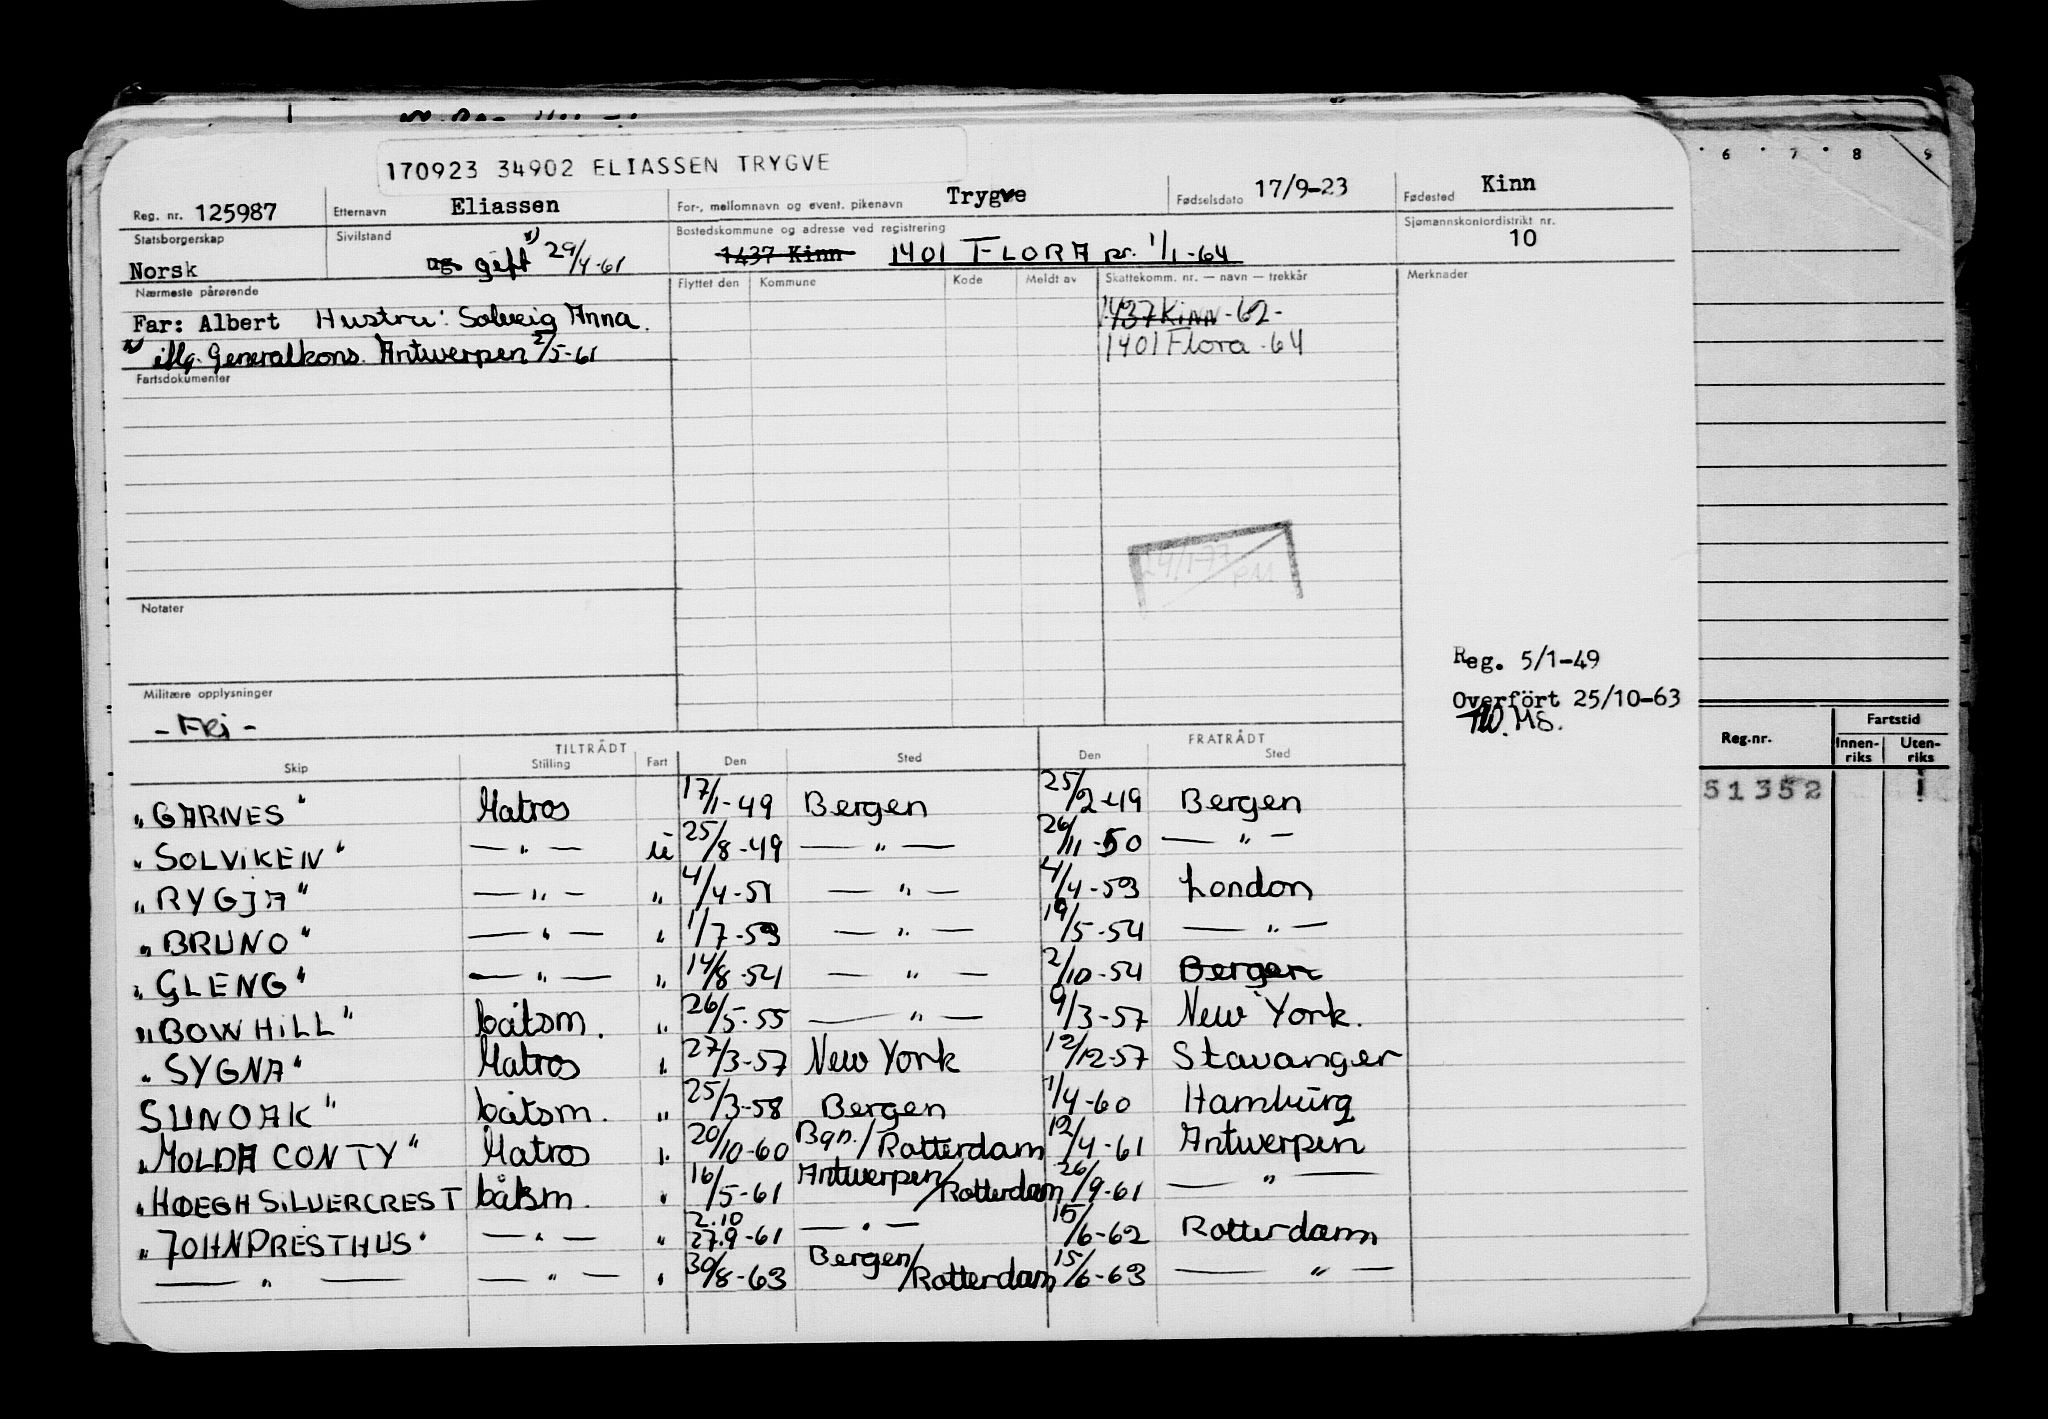 170923 34902 ELIASSEN TRYGVE
Reg. nr. 125987 Etternavn Eliassen For-, mellomnavn og event. pikenavn Trygve Fødselsdato 17/9-23 Fødested Kinn
Statsborgerskap Norsk Sivilstand ug. gift x) 29/4-61 Bostedskommune og adresse ved registrering 1437 Kinn 1401 FLORA pr. 1/1-64 Sjømannskontordistrikt nr. 10
Nærmeste pårørende Flyttet den Kommune Kode Meldt av Skattekomm. nr. — navn — trekkår Merknader
Far: Albert Hustru: Solveig Anna. 1437 KINN -62-
x) iflg. Generalkons. Antwerpen 2/5-61 1401 Flora -64
Fartsdokumenter
Notater
Reg. 5/1-49
Militære opplysninger Overfört 25/10-63
- FRi - MS.
TILTRÅDT FRATRÅDT
Skip Stilling Fart Den Sted Den Sted
"GARNES" Matros 17/1-49 Bergen 25/2-49 Bergen
"SOLVIKEN" — " — u 25/8-49 — " — 26/11-50 — " —
"RYGJA" — " — " 4/4-51 — " — 4/4-53 London
"BRUNO" — " — " 1/7-53 — " — 19/5-54 — " —
"GLENG" — " — " 14/8-54 — " — 2/10-54 Bergen
"BOW HILL" båtsm. " 26/5-55 — " — 9/3-57 New York.
"SYGNA" Matros " 27/3-57 New York 12/12-57 Stavanger
SUNOAK" båtsm. " 25/3-58 Bergen 1/4-60 Hamburg
"MOLDA CONTY" Matros " 20/10-60 Bgn./Rotterdam 12/4-61 Antwerpen
"HØEGH SILVERCREST båtsm. " 16/5-61 Antwerpen/Rotterdam 26/9-61 — " —
"JOHN PRESTHUS" — " — " 2.10 27.9-61 — " — 15/6-62 Rotterdam
— " — — " — " 30/8-63 Bergen/Rotterdam 15/6-63 — " —
6 7 8 9
Reg.nr. Fartstid
Innen-riks Uten-riks
51352 1